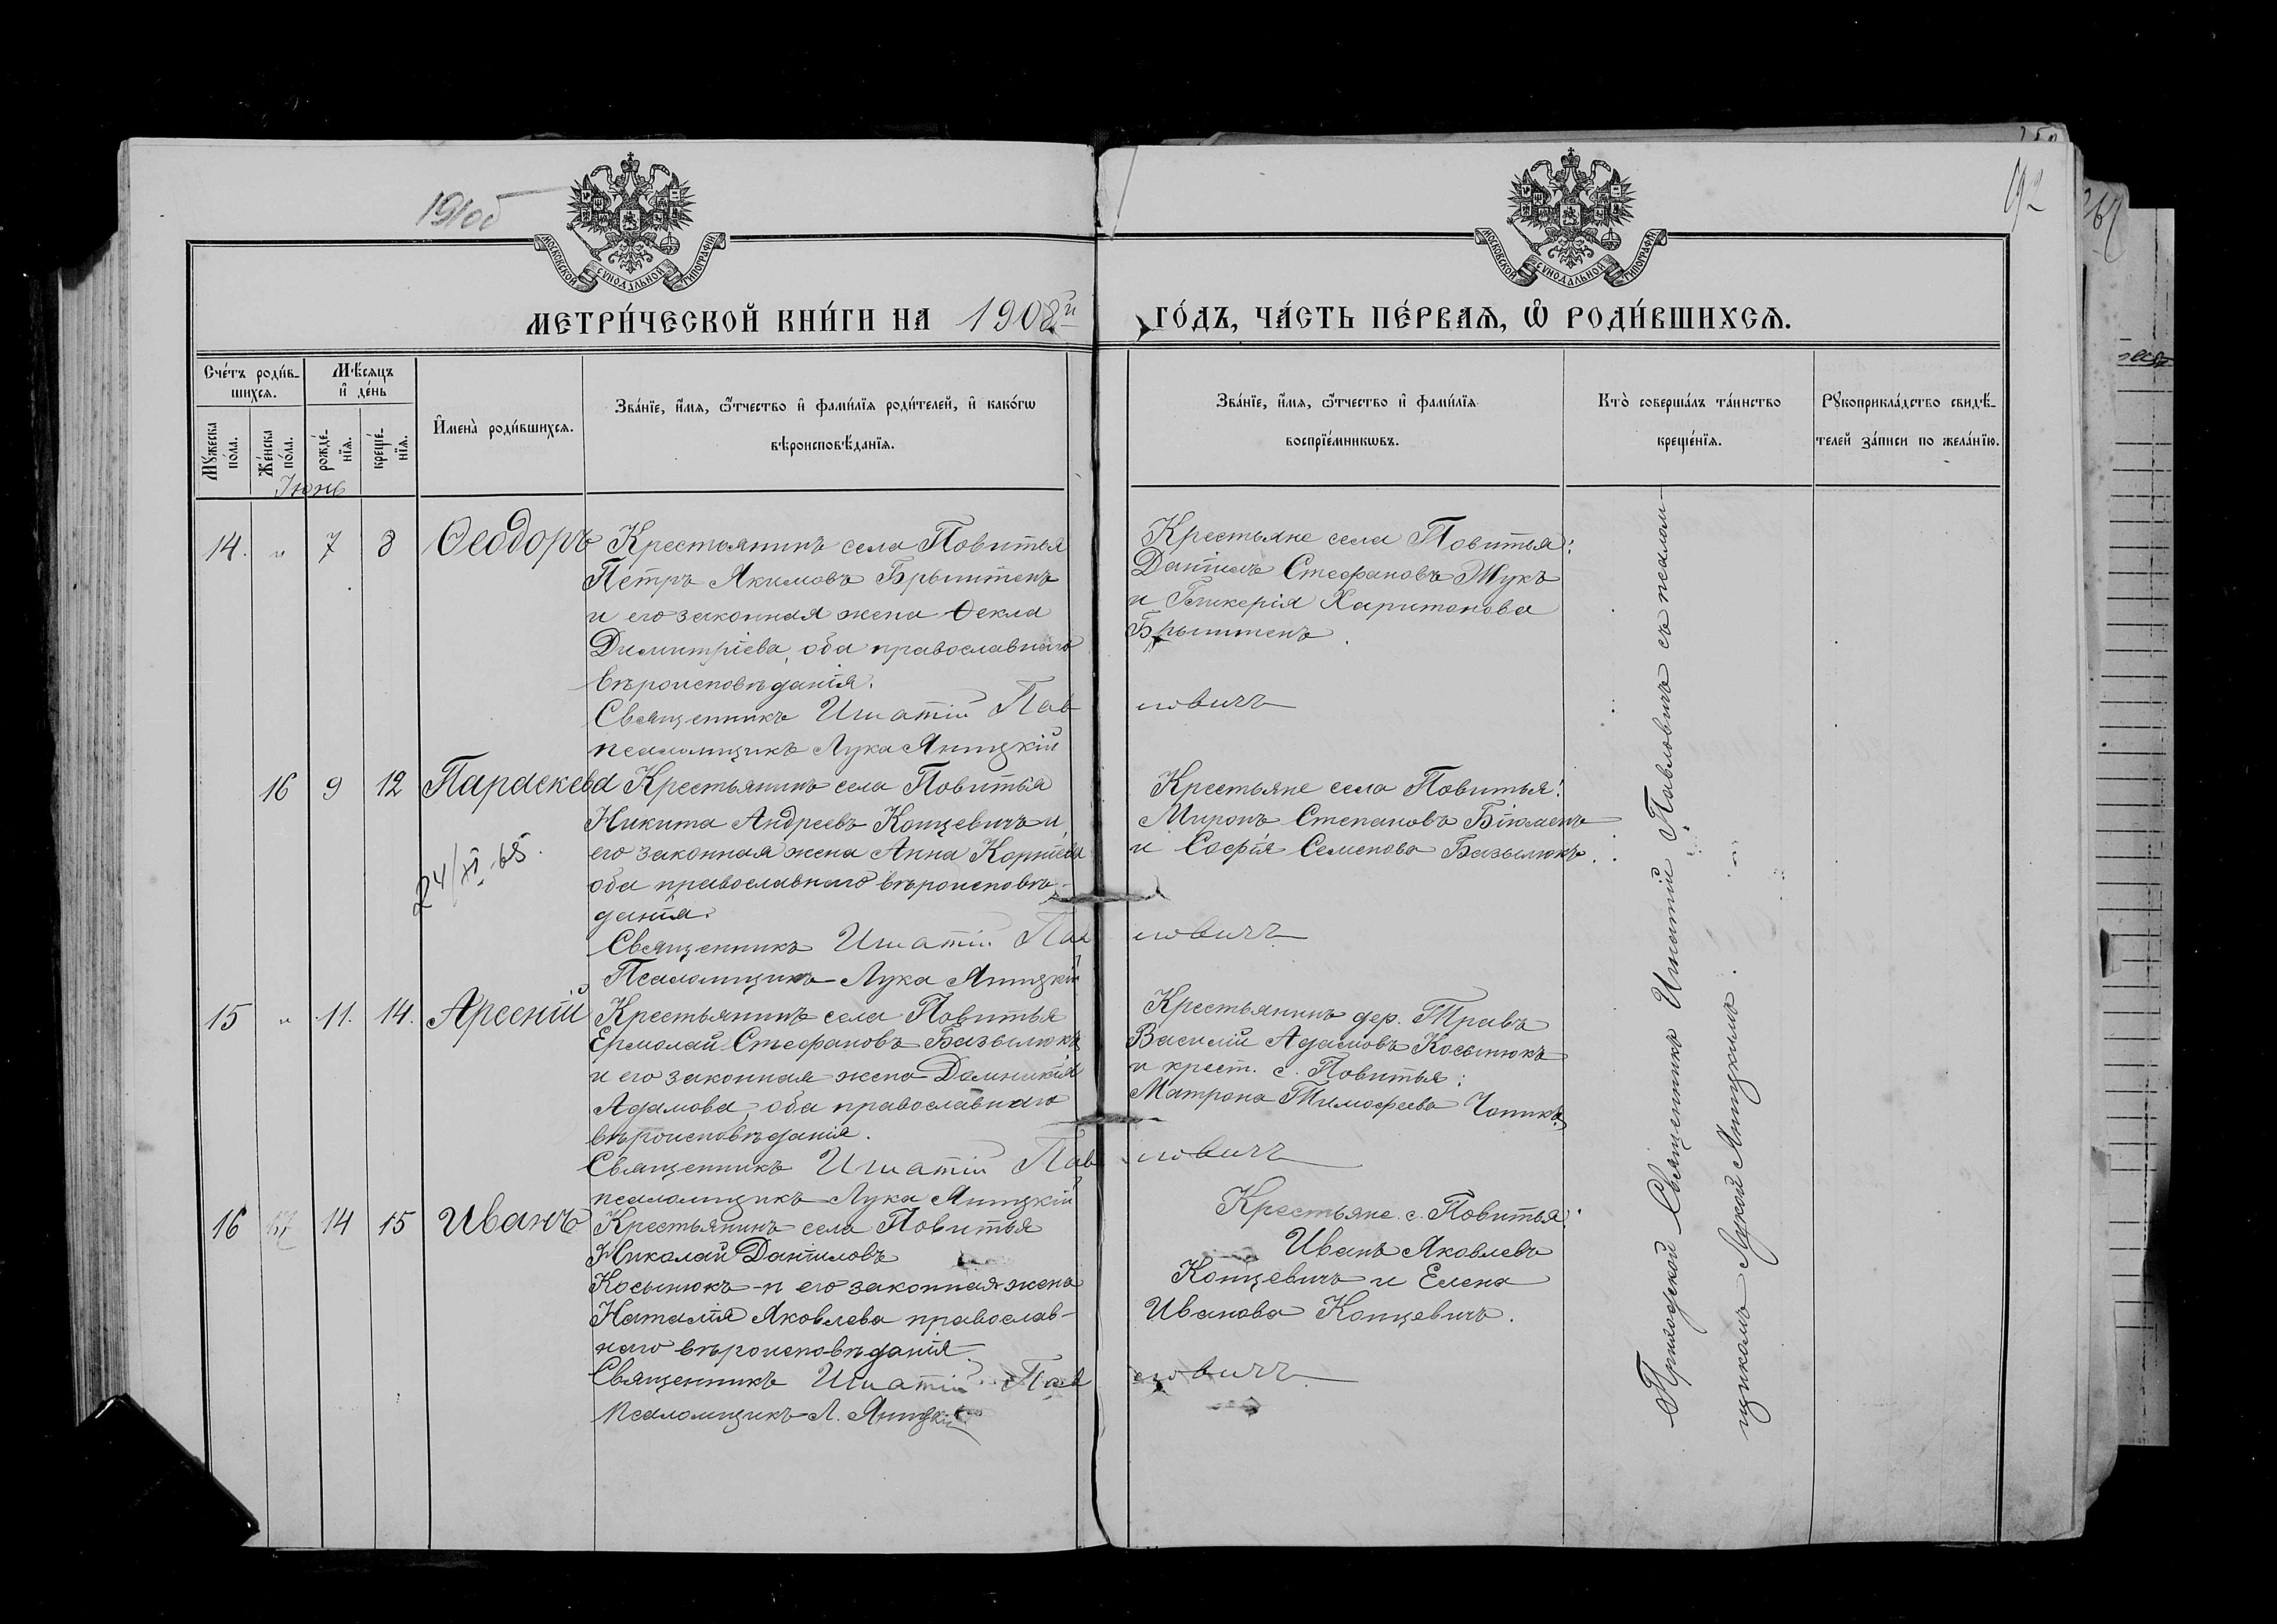 192
МОСКОВСКОЙ СѴНОДАЛЬНОЙ ТИПОГРАФІИ.
МОСКОВСКОЙ СѴНОДАЛЬНОЙ ТИПОГРАФІИ.
МЕТРИ́ЧЕСКОЙ КНИ́ГИ НА 1908й ГО́ДЪ, ЧА́СТЬ ПЕ́РВАѦ, Ѽ РОДИ́ВШИХСѦ.
Сче́тъ роди́в-
шихсѧ.
Мѣ́сѧцъ
и҆ де́нь
Мꙋ́жеска
по́ла.
Же́нска
по́ла.
рожде́-
нїѧ.
креще́-
нїѧ.
И҆мена̀ роди́вшихсѧ.
Зва́нїе, и҆́мѧ, ѻ҆́тчество и҆ фами́лїѧ роди́телей, и҆ како́гѡ
вѣроисповѣ́данїѧ.
Зва́нїе, и҆́мѧ, ѻ҆́тчество и҆ фами́лїѧ
воспрїе́мникѡвъ.
Кто̀ соверша́лъ та́инство
креще́нїѧ.
Рꙋкоприкла́дство свидѣ́-
телей за́писи по жела́нїю.
Іюнь
14. " 7 8 Ѳеодоръ Крестьянинъ села Повитья
Петръ Якимовъ Брынтенъ
и его законная жена Ѳекла
Димитріева, оба православнаго
вѣроисповѣданія.
Священникъ Игнатій Павловичъ
псаломщикъ Лука Яницкій
Крестьяне села Повитья:
Даніилъ Стефановъ Жукъ
и Гликерія Харитонова
Брынтенъ.
16 9 12 Параскева Крестьянинъ села Повитья
Никита Андреевъ Концевичъ и
его законная жена Анна Корніева
оба православнаго вѣроисповѣ-
данія.
Священникъ Игнатій Павловичъ
Псаломщикъ Лука Яницкій
24/XI 65.
Крестьяне села Повитья:
Миронъ Степановъ
и Софія Семенова Базылюкъ.
15 " 11. 14. Арсеній Крестьянинъ села Повитья
Ермолай Стефановъ Базылюкъ
и его законная жена Домникія
Адамова, оба православнаго
вѣроисповѣданія.
Священникъ Игнатій Павловичъ
псаломщикъ Лука Яницкій
Крестьянинъ дер. Травъ
Василій Адамовъ Косынюкъ
и крест. с. Повитья:
Матрона Тимофеева Чопикъ.
16 14 15 Иванъ Крестьянинъ села Повитья
Николай Даніиловъ
Косынюкъ и его законная жена
Наталія Яковлева православ-
наго вѣроисповѣданія
Священникъ Игнатій Павловичъ
Псаломщикъ Л. Яницкій
Крестьяне с. Повитья:
Иванъ Яковлевъ
Концевичъ и Елена
Иванова Концевичъ.
Приходской Священникъ Игнатій Павловичъ съ псалом-
щикомъ Лукой Яницкимъ.